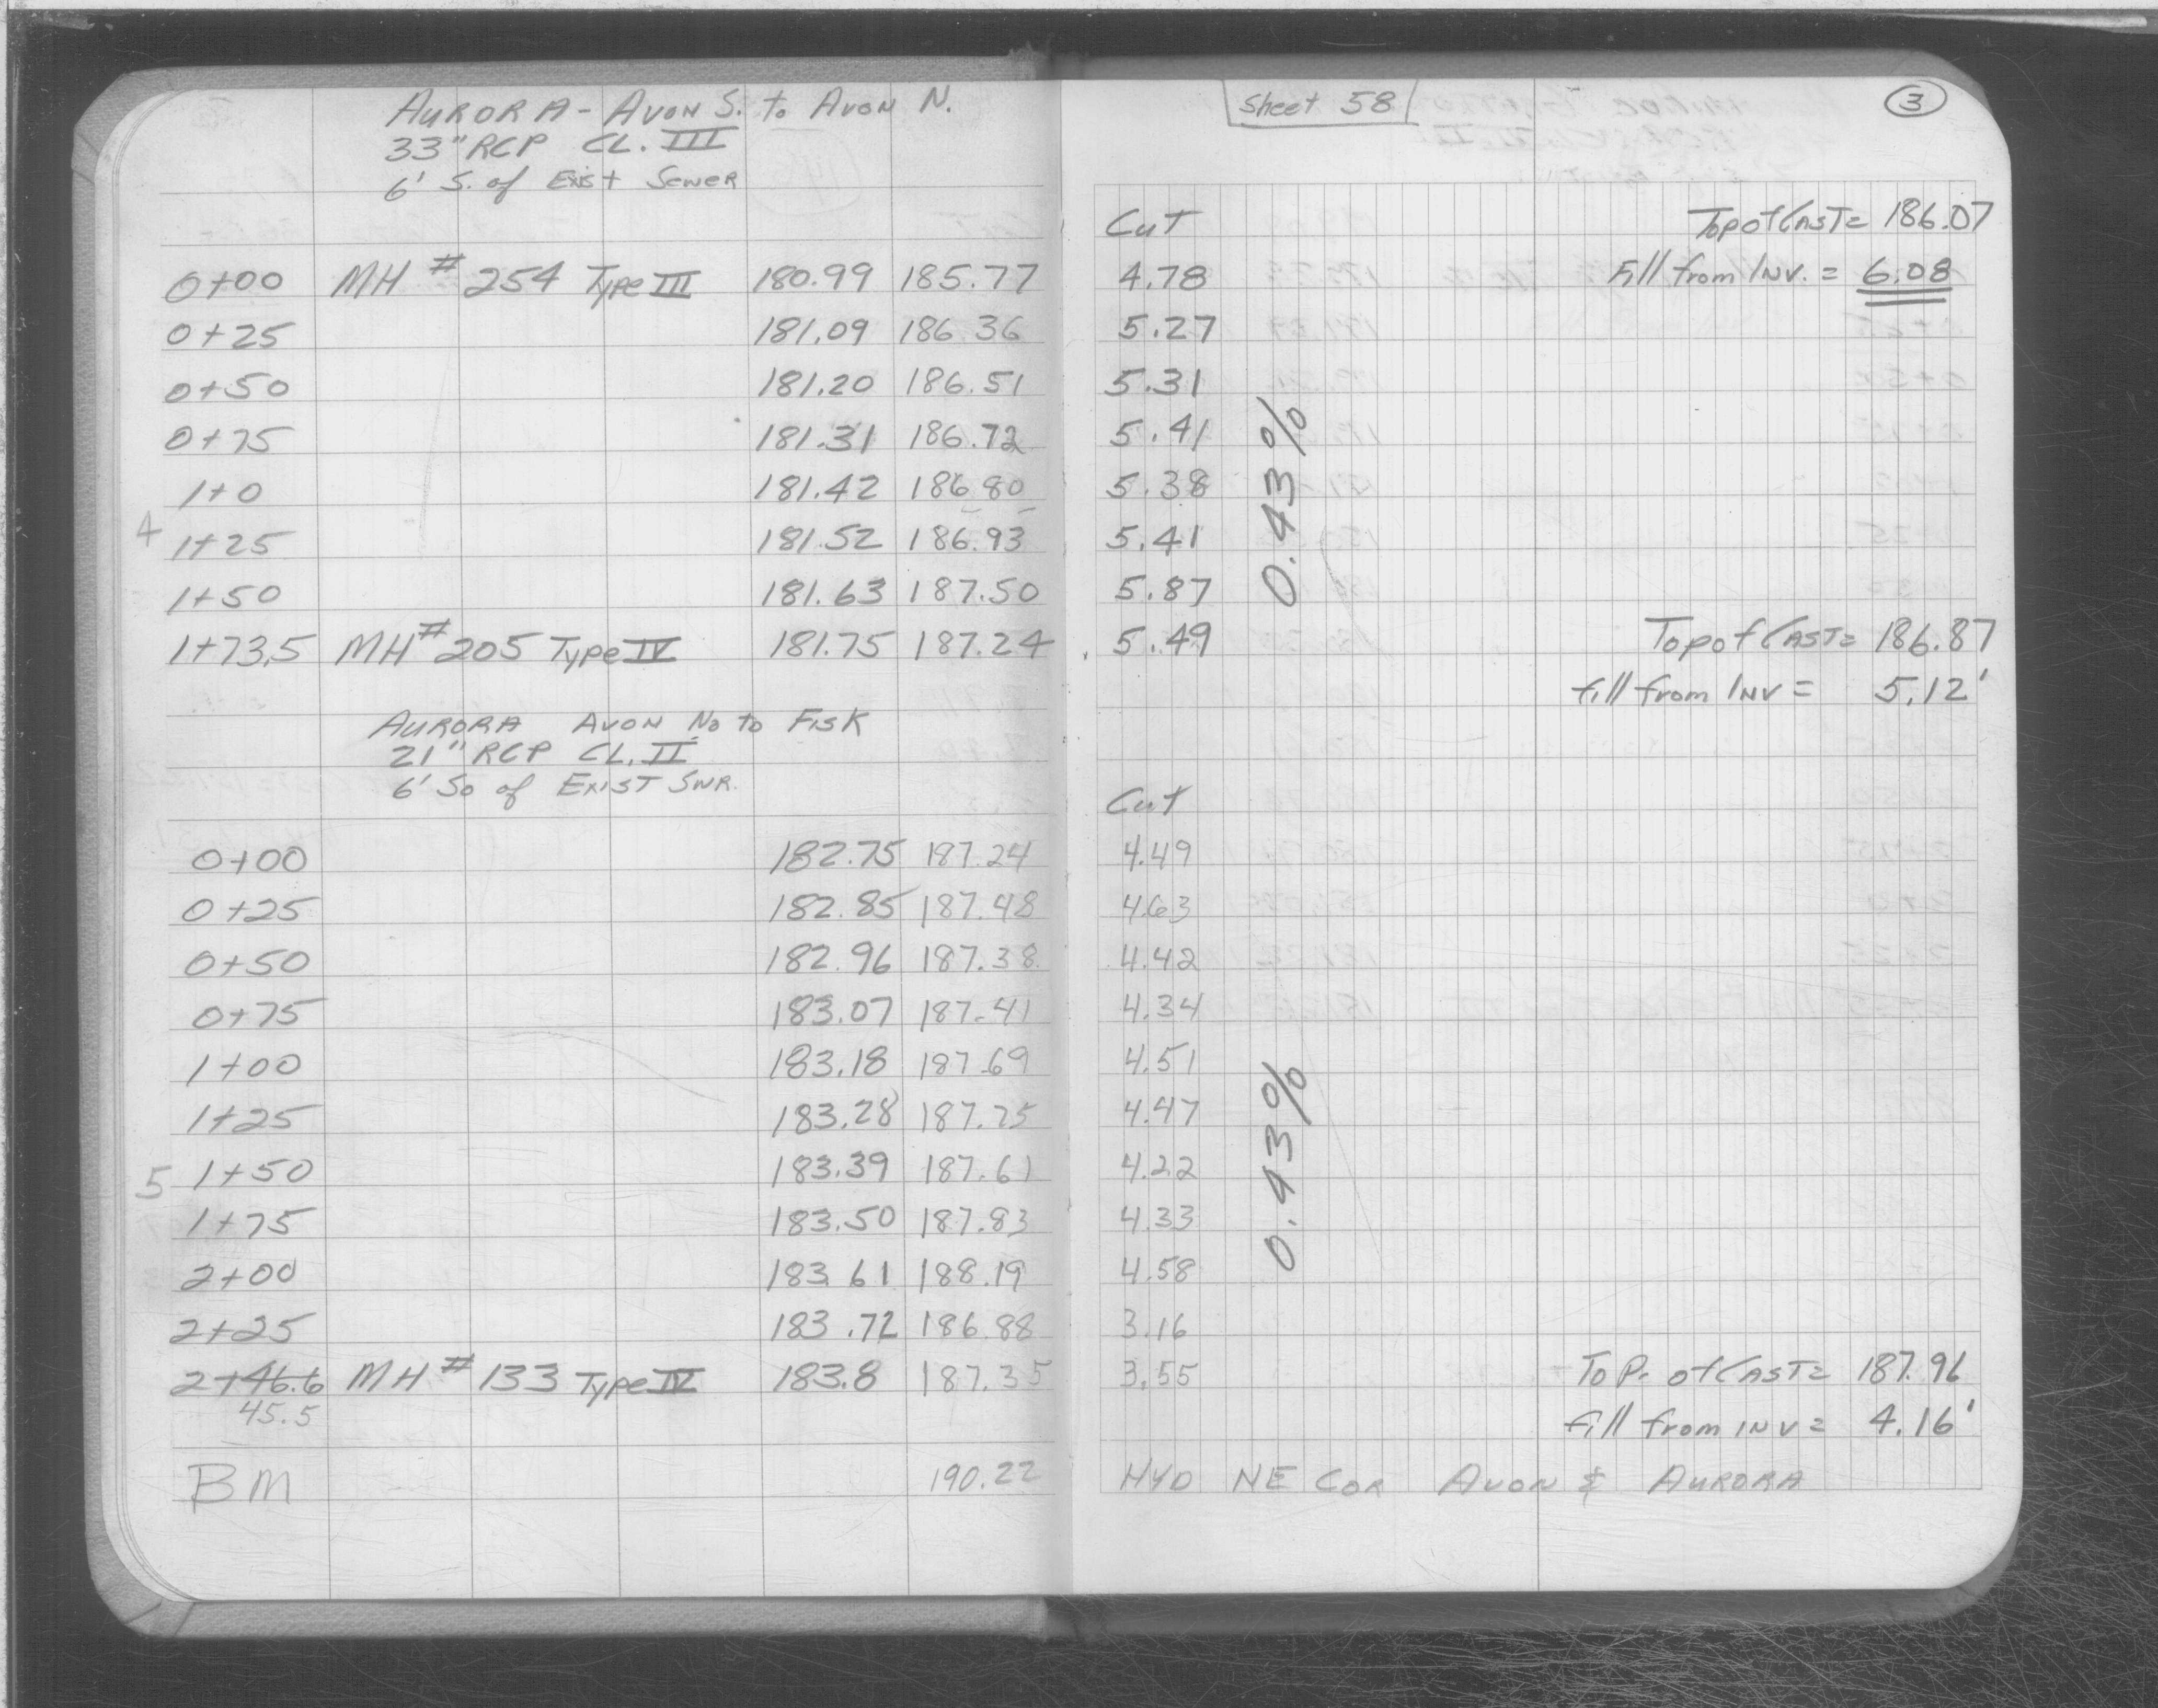 AURORA - AVON S. to AVON N.
33" RCP CL. III
6' S. of Exist Sewer
Sheet 58
3
Cut
Top of Cast = 186.07
0+00 MH # 254 Type III 180.99 185.77 4.78 Fill from Inv. = 6.08
0+25 181.09 186.36 5.27
0+50 181.20 186.51 5.31
0+75 181.31 186.72 5.41
1+0 181.42 186.80 5.38
4 1+25 181.52 186.93 5.41
1+50 181.63 187.50 5.87
0.43%
1+73.5 MH # 205 Type IV 181.75 187.24 5.49 Top of Cast = 186.87
fill from Inv = 5.12'
AURORA AVON No to Fisk
21" RCP CL. II
6' So of EXIST SWR.
Cut
0+00 182.75 187.24 4.49
0+25 182.85 187.48 4.63
0+50 182.96 187.38 4.42
0+75 183.07 187.41 4.34
1+00 183.18 187.69 4.51
1+25 183.28 187.75 4.47
5 1+50 183.39 187.61 4.22
1+75 183.50 187.83 4.33
2+00 183.61 188.19 4.58
0.43%
2+25 183.72 186.88 3.16
2+46.6 MH # 133 Type IV 183.8 187.35 3.55 Top. of Cast = 187.96
45.5 fill from inv = 4.16'
BM 190.22 HYD NE COR AVON & AURORA